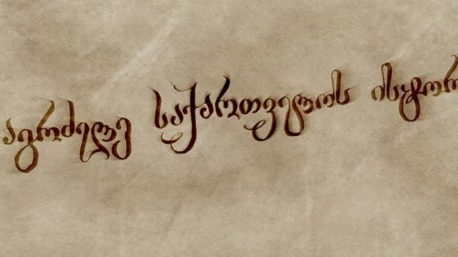 აგრძელე საქართველოს ისტორ